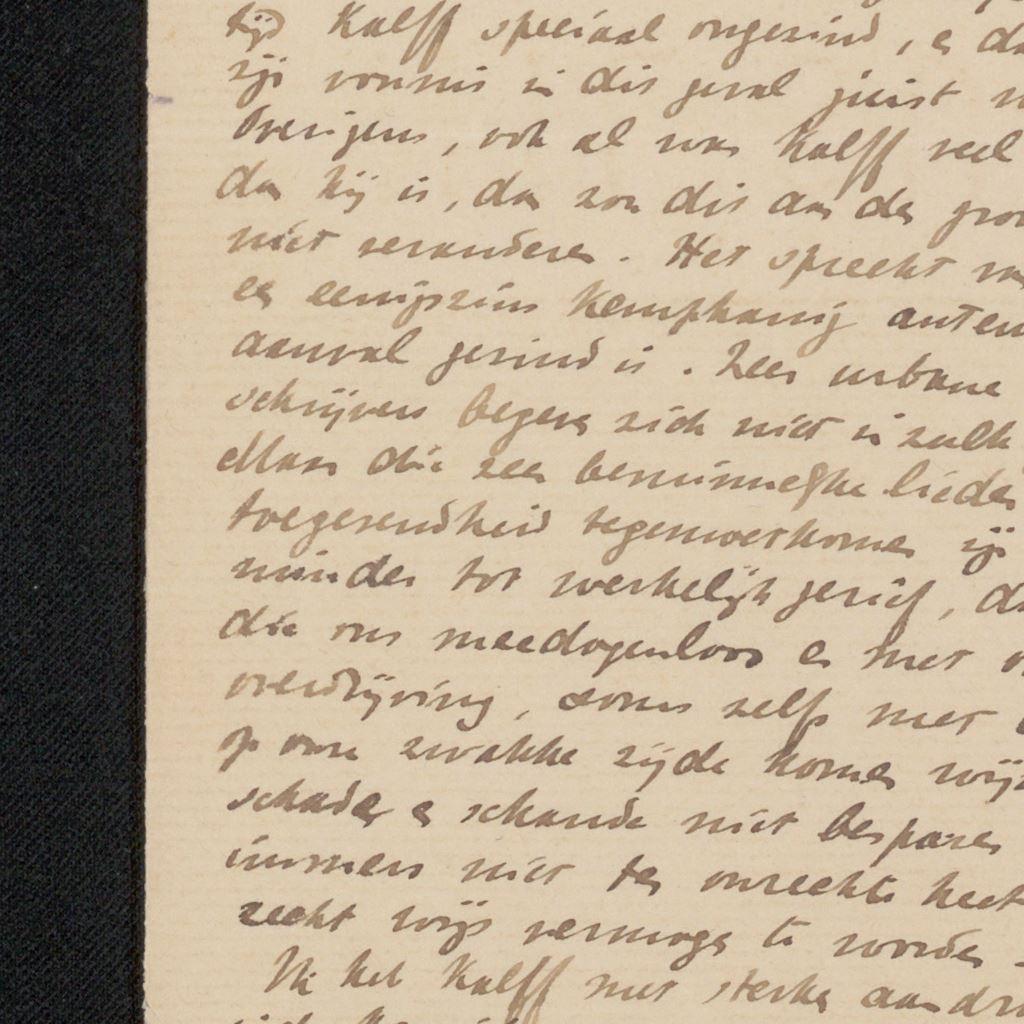 tijd Kalff speciaal ongezind, e
zijn vonnis in dit geval juist
Overigens, ook al was Kalff veel
dan hij is, dan zou dit aan de
niet veranderen. Het spreekt
een eenigszins Kemphanig
aanval gezind is. Zeer urbane
schrijvers begeven zich niet in zulk
Maar die zeer beminnelijke lieden
toegevendheid tegenoverkomen zijn
minder tot werkelijk gerief,
die ons meedogenloos en met
overdrijving, soms zelfs met
op onze zwakke zijde komen
schade en schande niet besparen
immers niet ten onrechte heet
recht wijs vermogen te worden
Ik heb Kalff met sterke